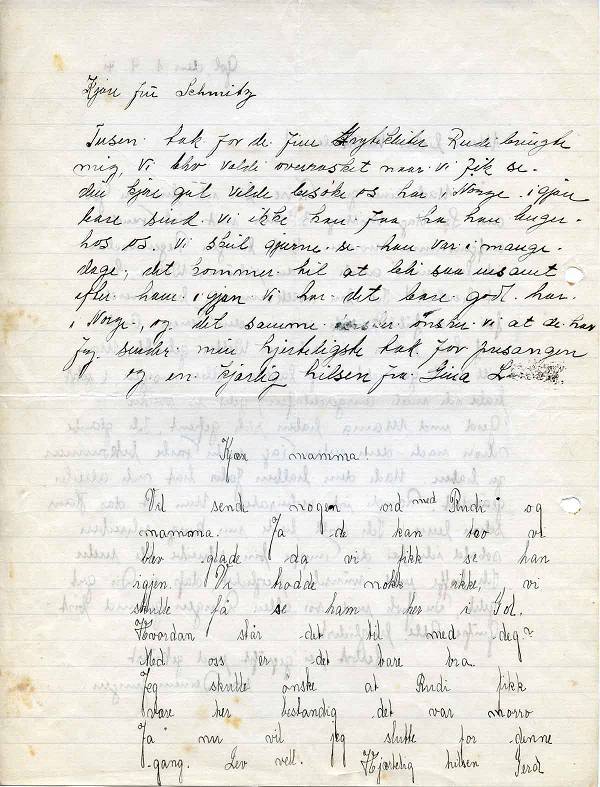 Kjære frú Schmitz
Tusen tak for de fine Rudi bringte
mig, vi blev veldi overrasket naar vi fik se
din kjere gut vilde besøke os her i Norge igjen
bare synd vi ikke kan faa ha han lenger
hos os. vi skul gjerne se han var i mange
dage, det kommer til at bli saa ensamt
efter ham igjen vi har det bare godt her
i Norge, og det samme ønsker vi at de har
Jeg sender min hjerteligste tak for presangen
og en kjærlig hilsen fra Gina L
Kjære mamma!
Vil sende nogen ord med Rudi og
mamma. Ja de kan too vi
blev glade da vi fikk se han
igjen. Vi hadde nokk ikke, vi
skulle få se ham her i Gol.
Hvordan står det til med deg?
Med oss er det bare bra.
Jeg skulle ønske at Rudi fikk
være her bestandig det var morro
Ja nu vil jeg slutte for denne
gang. Lev vell. Hjærtelig hilsen Gerd